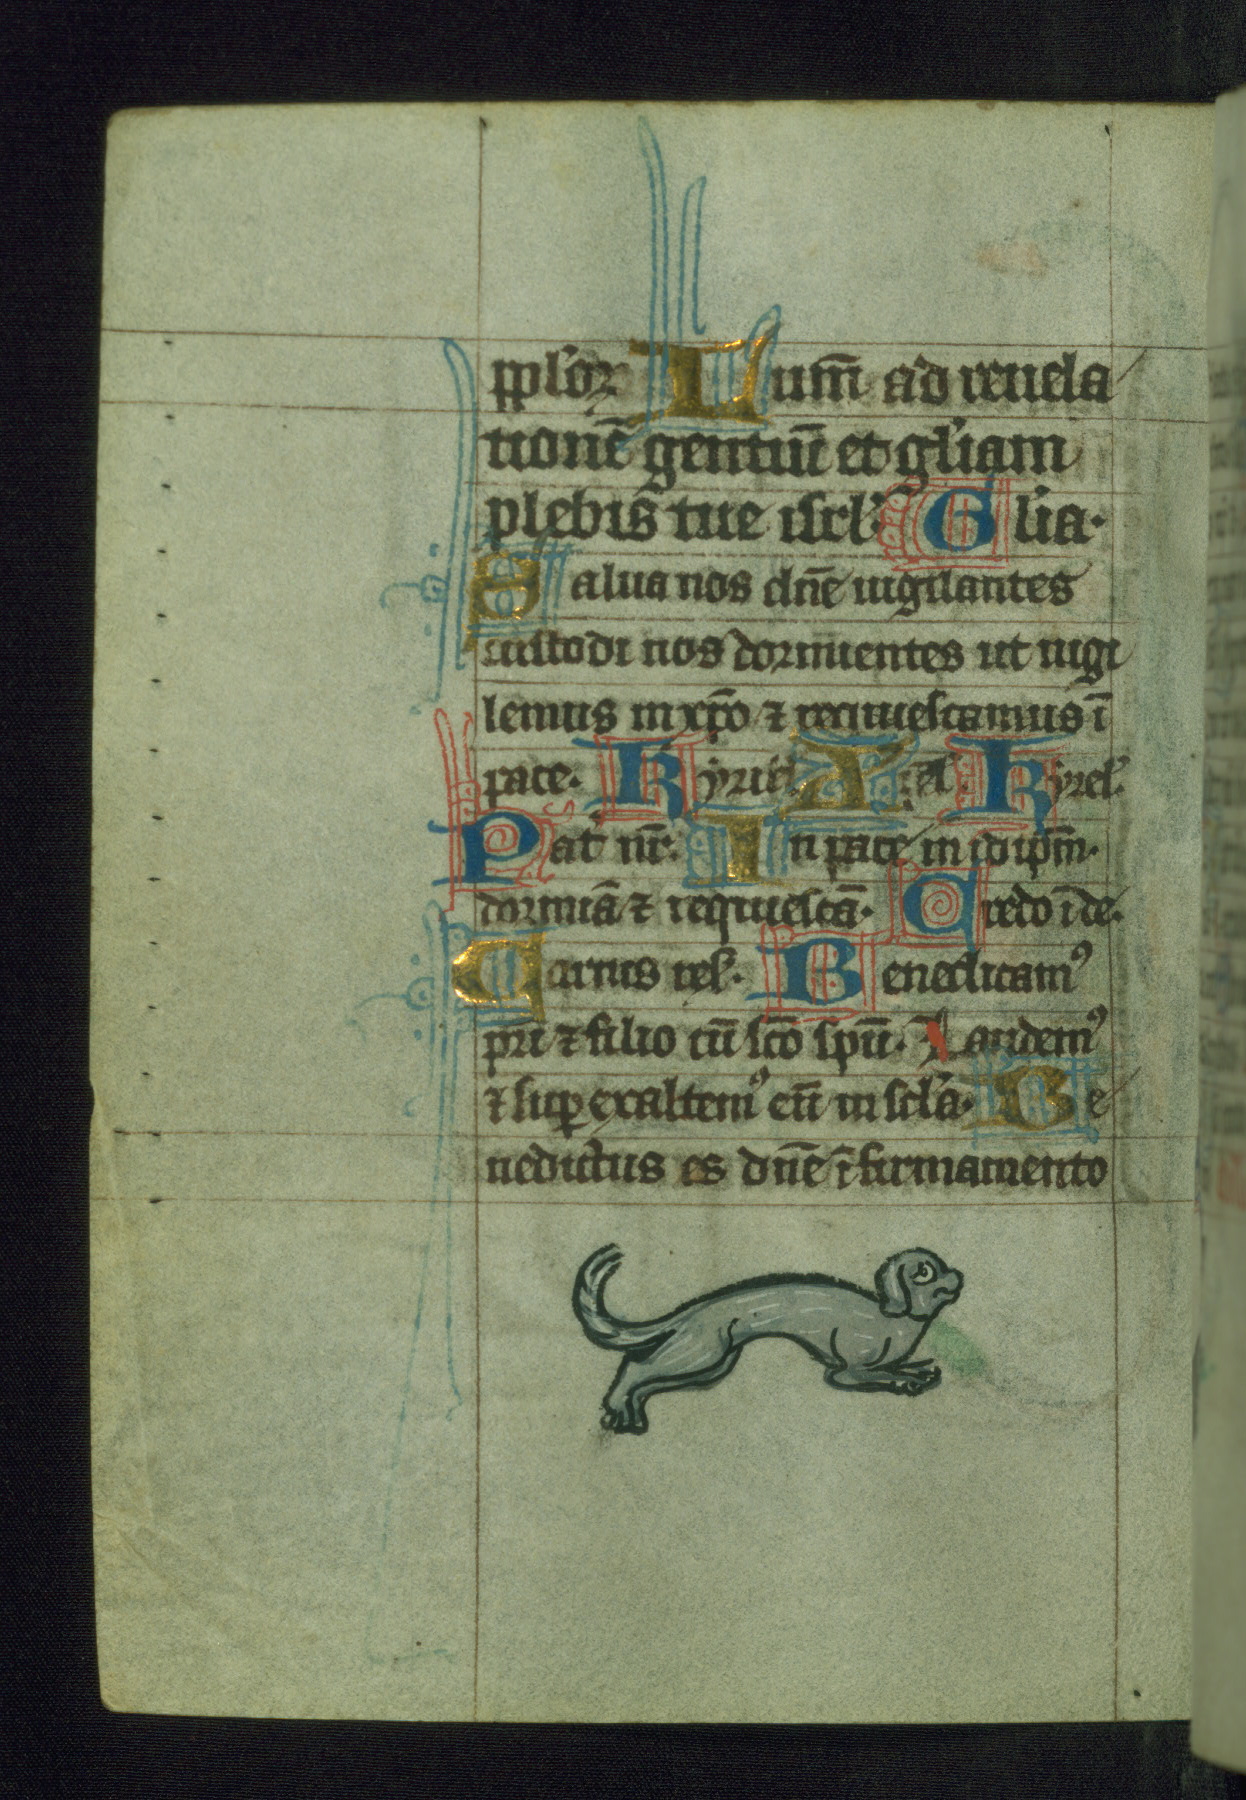 pploꝝ Lum̄ ad reuela
tionē gentiū et gl'iam
plebis tue isrl' Gl'ia.
Salua nos dn̄e uigilantes
custodi nos dormientes ut uigi
lemus in xp̄o ⁊ requiescamus ī
pace. Kyriel' Kyrel'.
Pat̄ nr̄. In pace in idip̄m.
dormiā ⁊ requiescā. Credo ī de.
Carnis res'. Benedicamꝰ
pri ⁊ filio cū sc̄o spū. Laudemꝰ
⁊ suꝑexaltemꝰ eū in scl'a. Be
nedictus es dn̄e ī firmamento